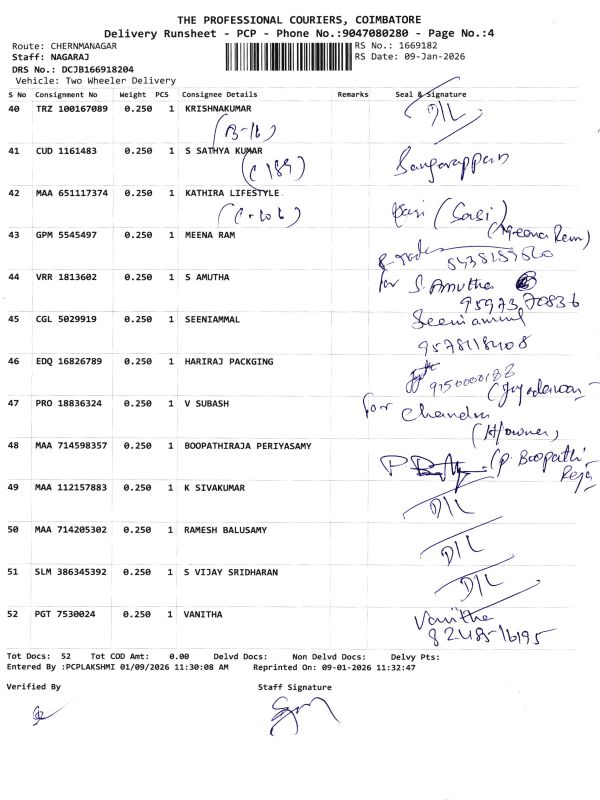 THE PROFESSIONAL COURIERS, COIMBATORE
Delivery Runsheet - PCP - Phone No.:9047080280 - Page No.:4
Route: CHERNMANAGAR
RS No.: 1669182
Staff: NAGARAJ
RS Date: 09-Jan-2026
DRS No.: DCJB166918204
Vehicle: Two Wheeler Delivery
S No Consignment No Weight PCS Consignee Details Remarks Seal & Signature
40 TRZ 100167089 0.250 1 KRISHNAKUMAR D/L
(B-16)
41 CUD 1161483 0.250 1 S SATHYA KUMAR
(C 189)
42 MAA 651117374 0.250 1 KATHIRA LIFESTYLE (Sasi)
43 GPM 5545497 0.250 1 MEENA RAM (Meena Ram)
44 VRR 1813602 0.250 1 S AMUTHA for S. Amutha
95973 70836
45 CGL 5029919 0.250 1 SEENIAMMAL Seeniammal
9578118408
46 EDQ 16826789 0.250 1 HARIRAJ PACKGING
9150000188
47 PRO 18836324 0.250 1 V SUBASH for Chandru
(H/owner)
48 MAA 714598357 1 0.250 BOOPATHIRAJA PERIYASAMY (P. Boopathi
Raja)
49 MAA 112157883 0.250 1 K SIVAKUMAR D/L
50 MAA 714205302 0.250 1 RAMESH BALUSAMY D/L
51 SLM 386345392 0.250 1 S VIJAY SRIDHARAN D/L
52 PGT 7530024 0.250 1 VANITHA Vanitha
82485-16195
Tot Docs: 52 Tot COD Amt: 0.00 Delvd Docs: Non Delvd Docs: Delvy Pts:
Entered By :PCPLAKSHMI 01/09/2026 11:30:08 AM Reprinted On: 09-01-2026 11:32:47
Verified By Staff Signature